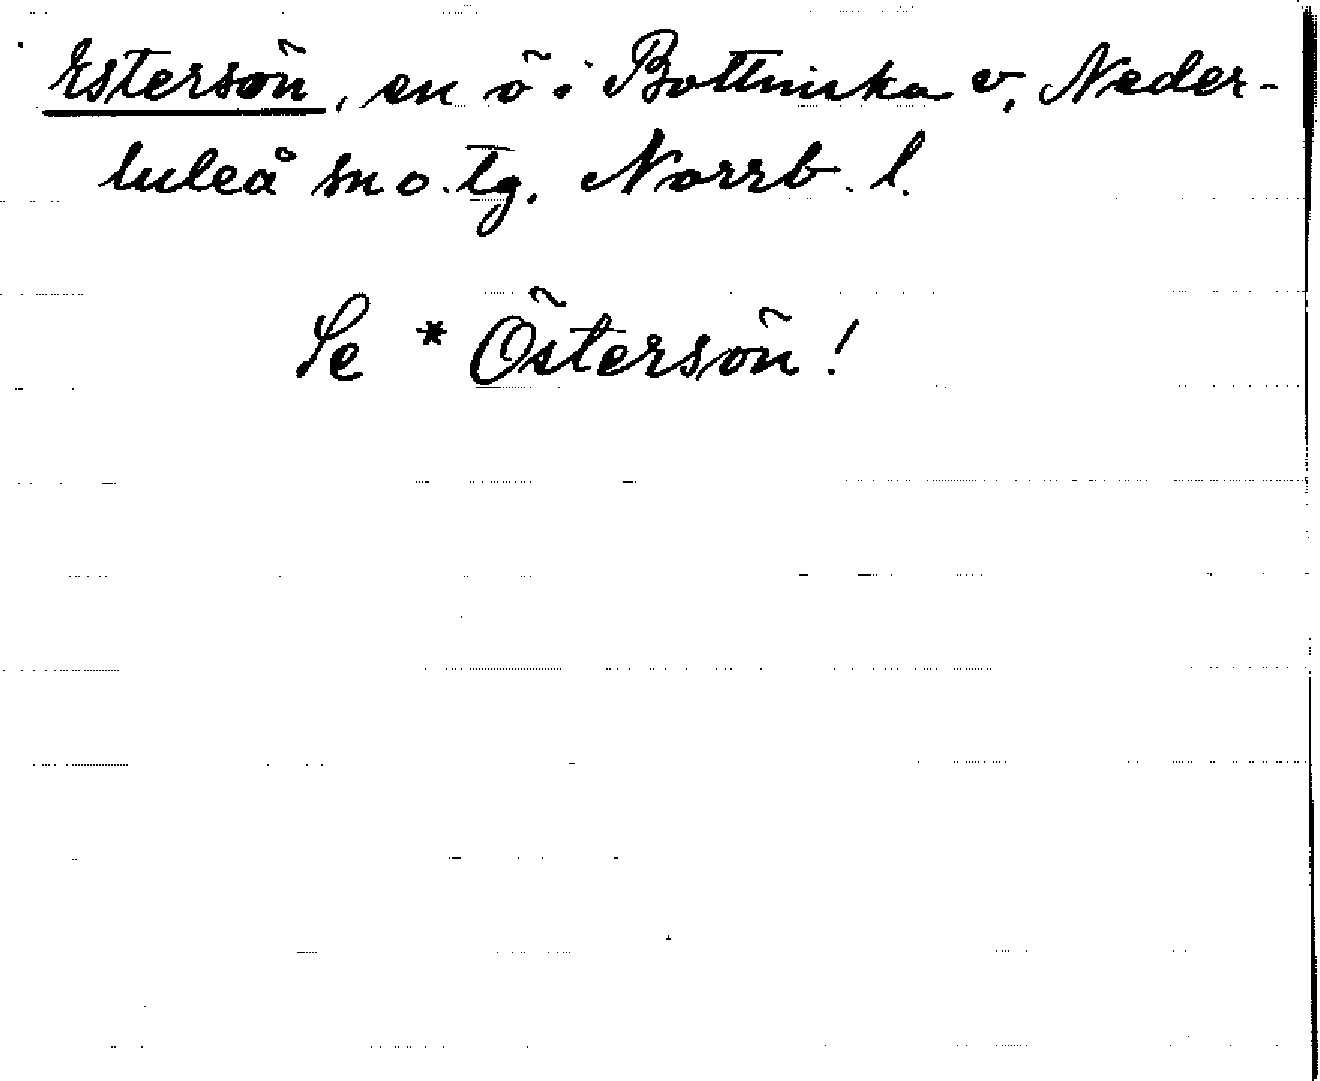 Estersön, en ö i Bottniska v, Neder-
luleå sn o. tg. Norrb. l.
Se * Östersön!